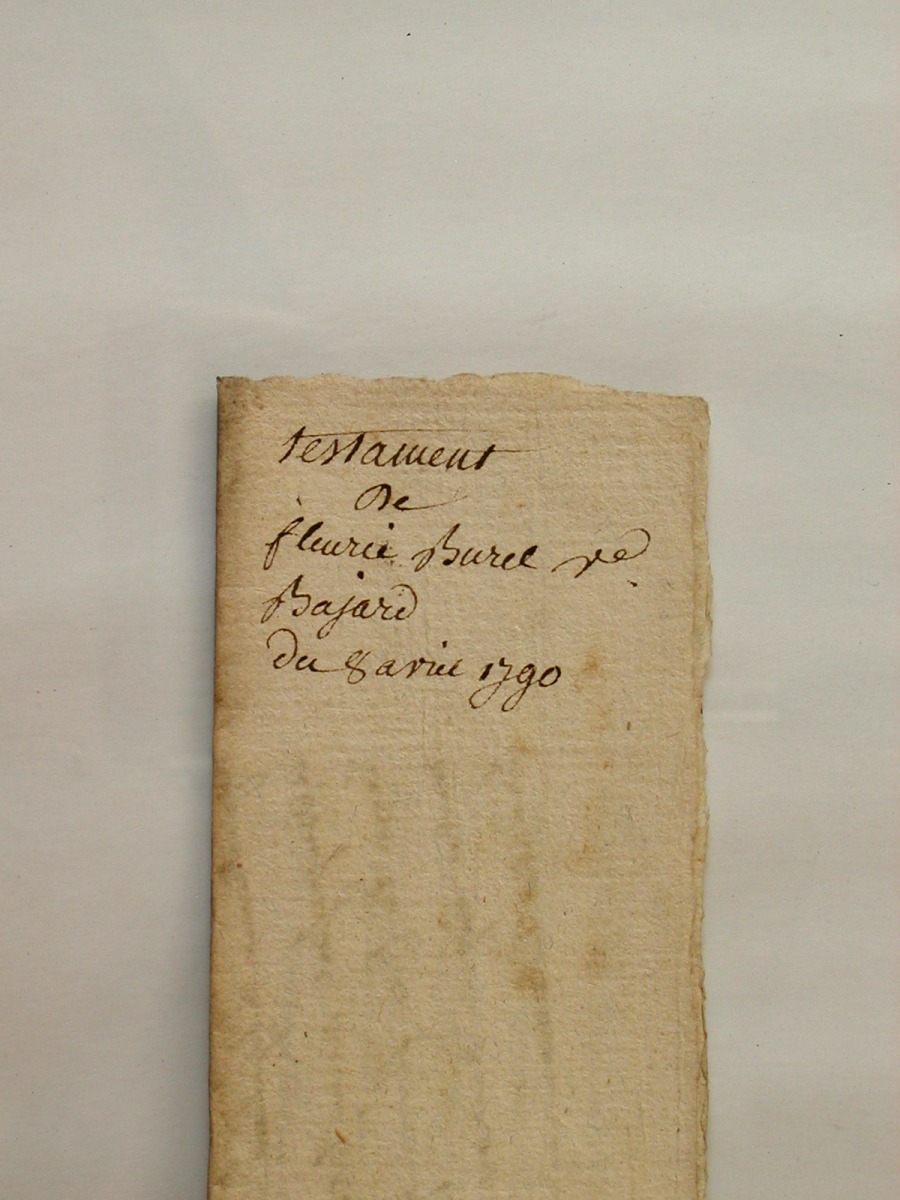 testament
de
fleurie Burel ve
Bajard
du 8 avril 1790